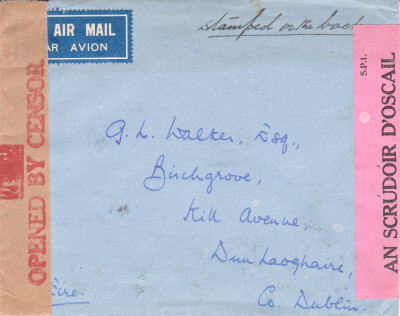 AIR MAIL
AR AVION
stamped on the back
G. L. Walker, Esq.,
Birchgrove,
Kill Avenue,
Dun Laoghaire,
Co. Dublin.
Eire
OPENED BY CENSOR
S.P.1.
AN SCRÚDÓIR D'OSCAIL